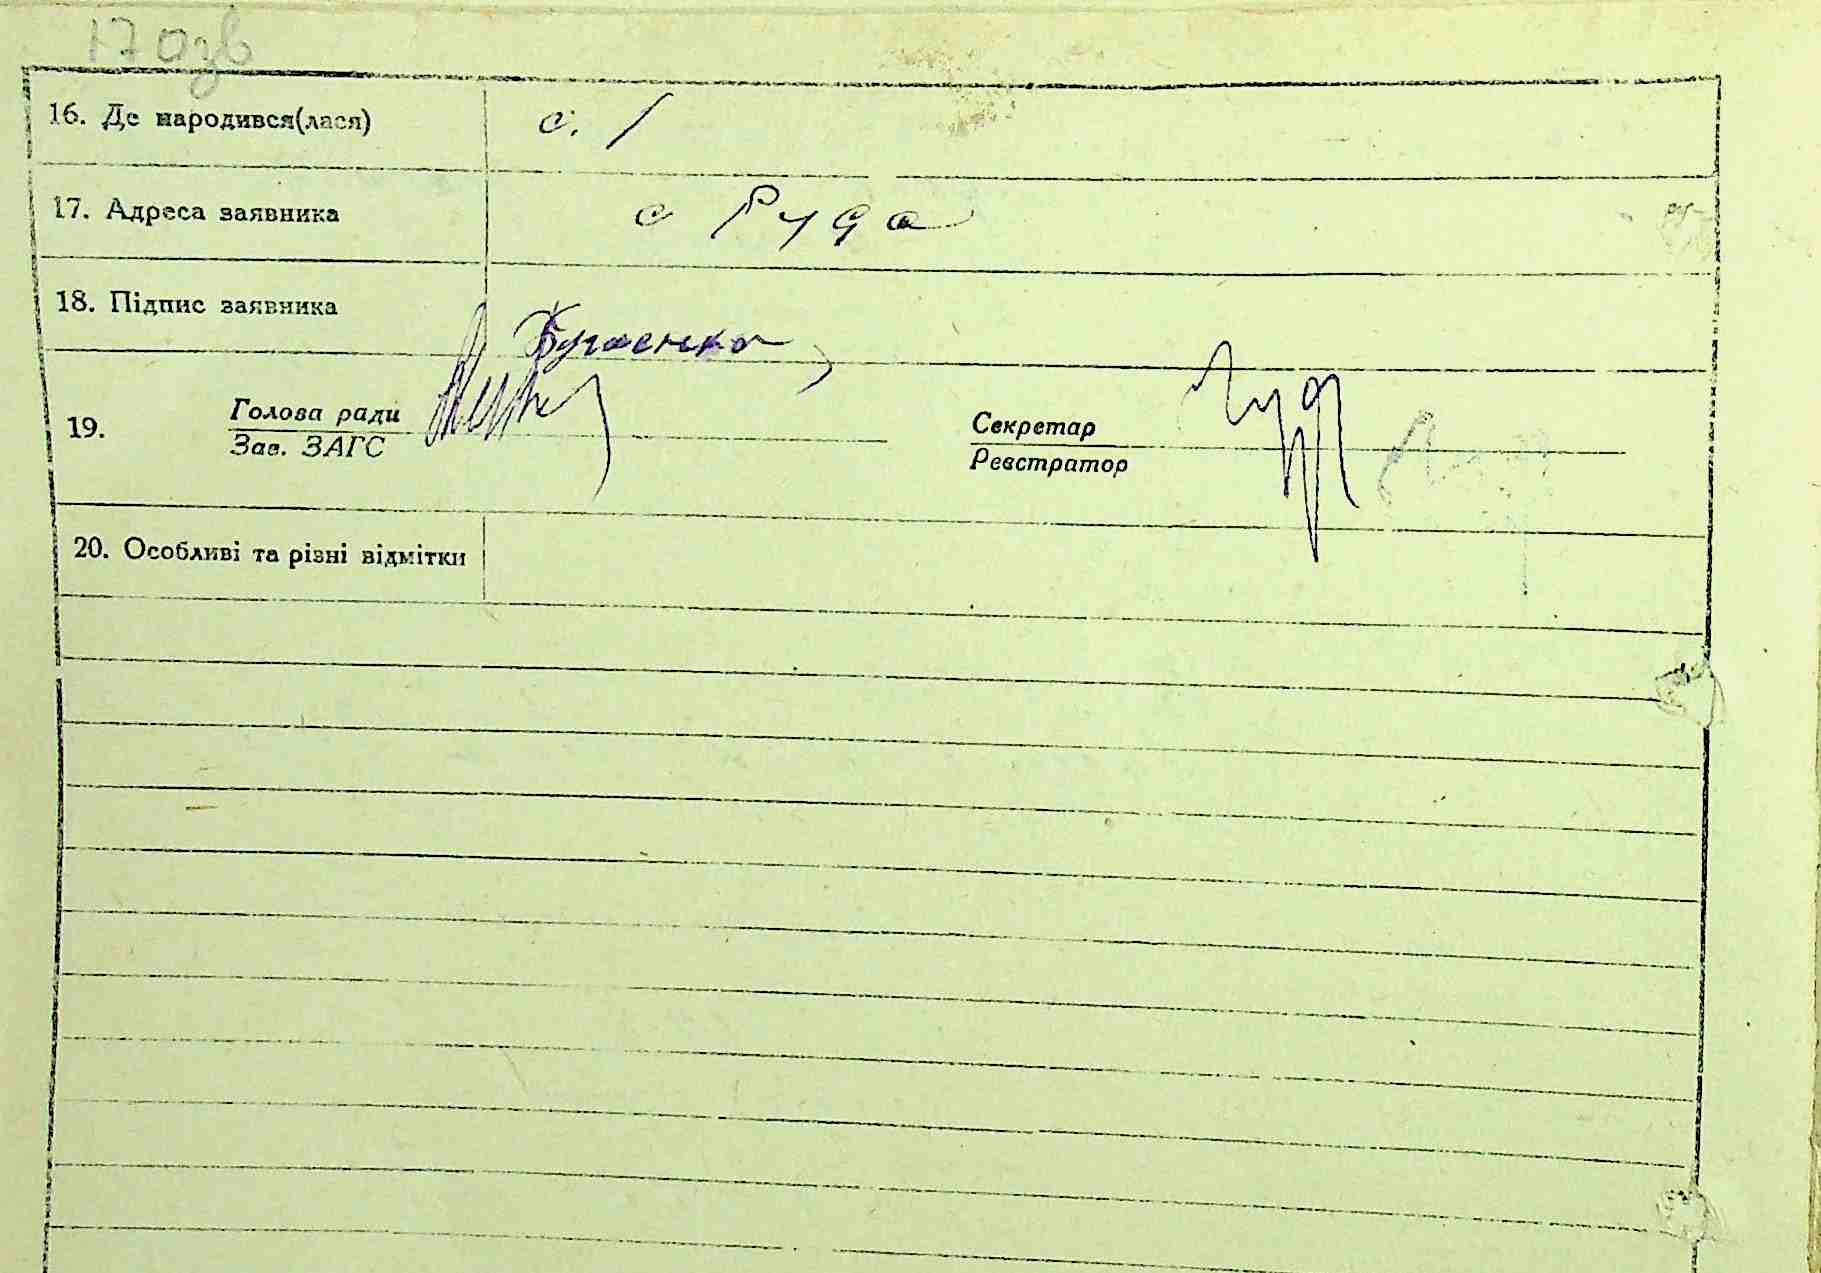 170зв
16. Де народився(лася) с. /
17. Адреса заявника с Руда
18. Підпис заявника Бугаєнко
19. Голова ради Секретар
Зав. ЗАГС Реєстратор
20. Особливі та різні відмітки